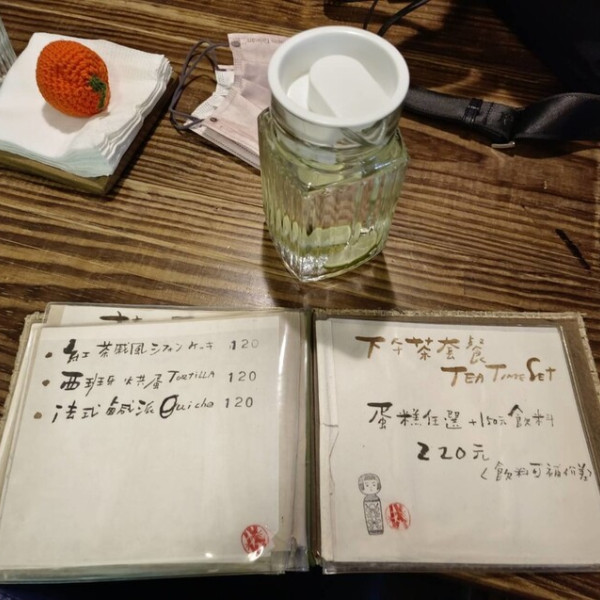 紅茶戚風シフォンケーキ 120
西班牙烘蛋 TORTILLA 120
法式鹹派 Quiche 120
下午茶套餐
TEA TIME SET
蛋糕任選 + 150元飲料
220元
(飲料可補價差)